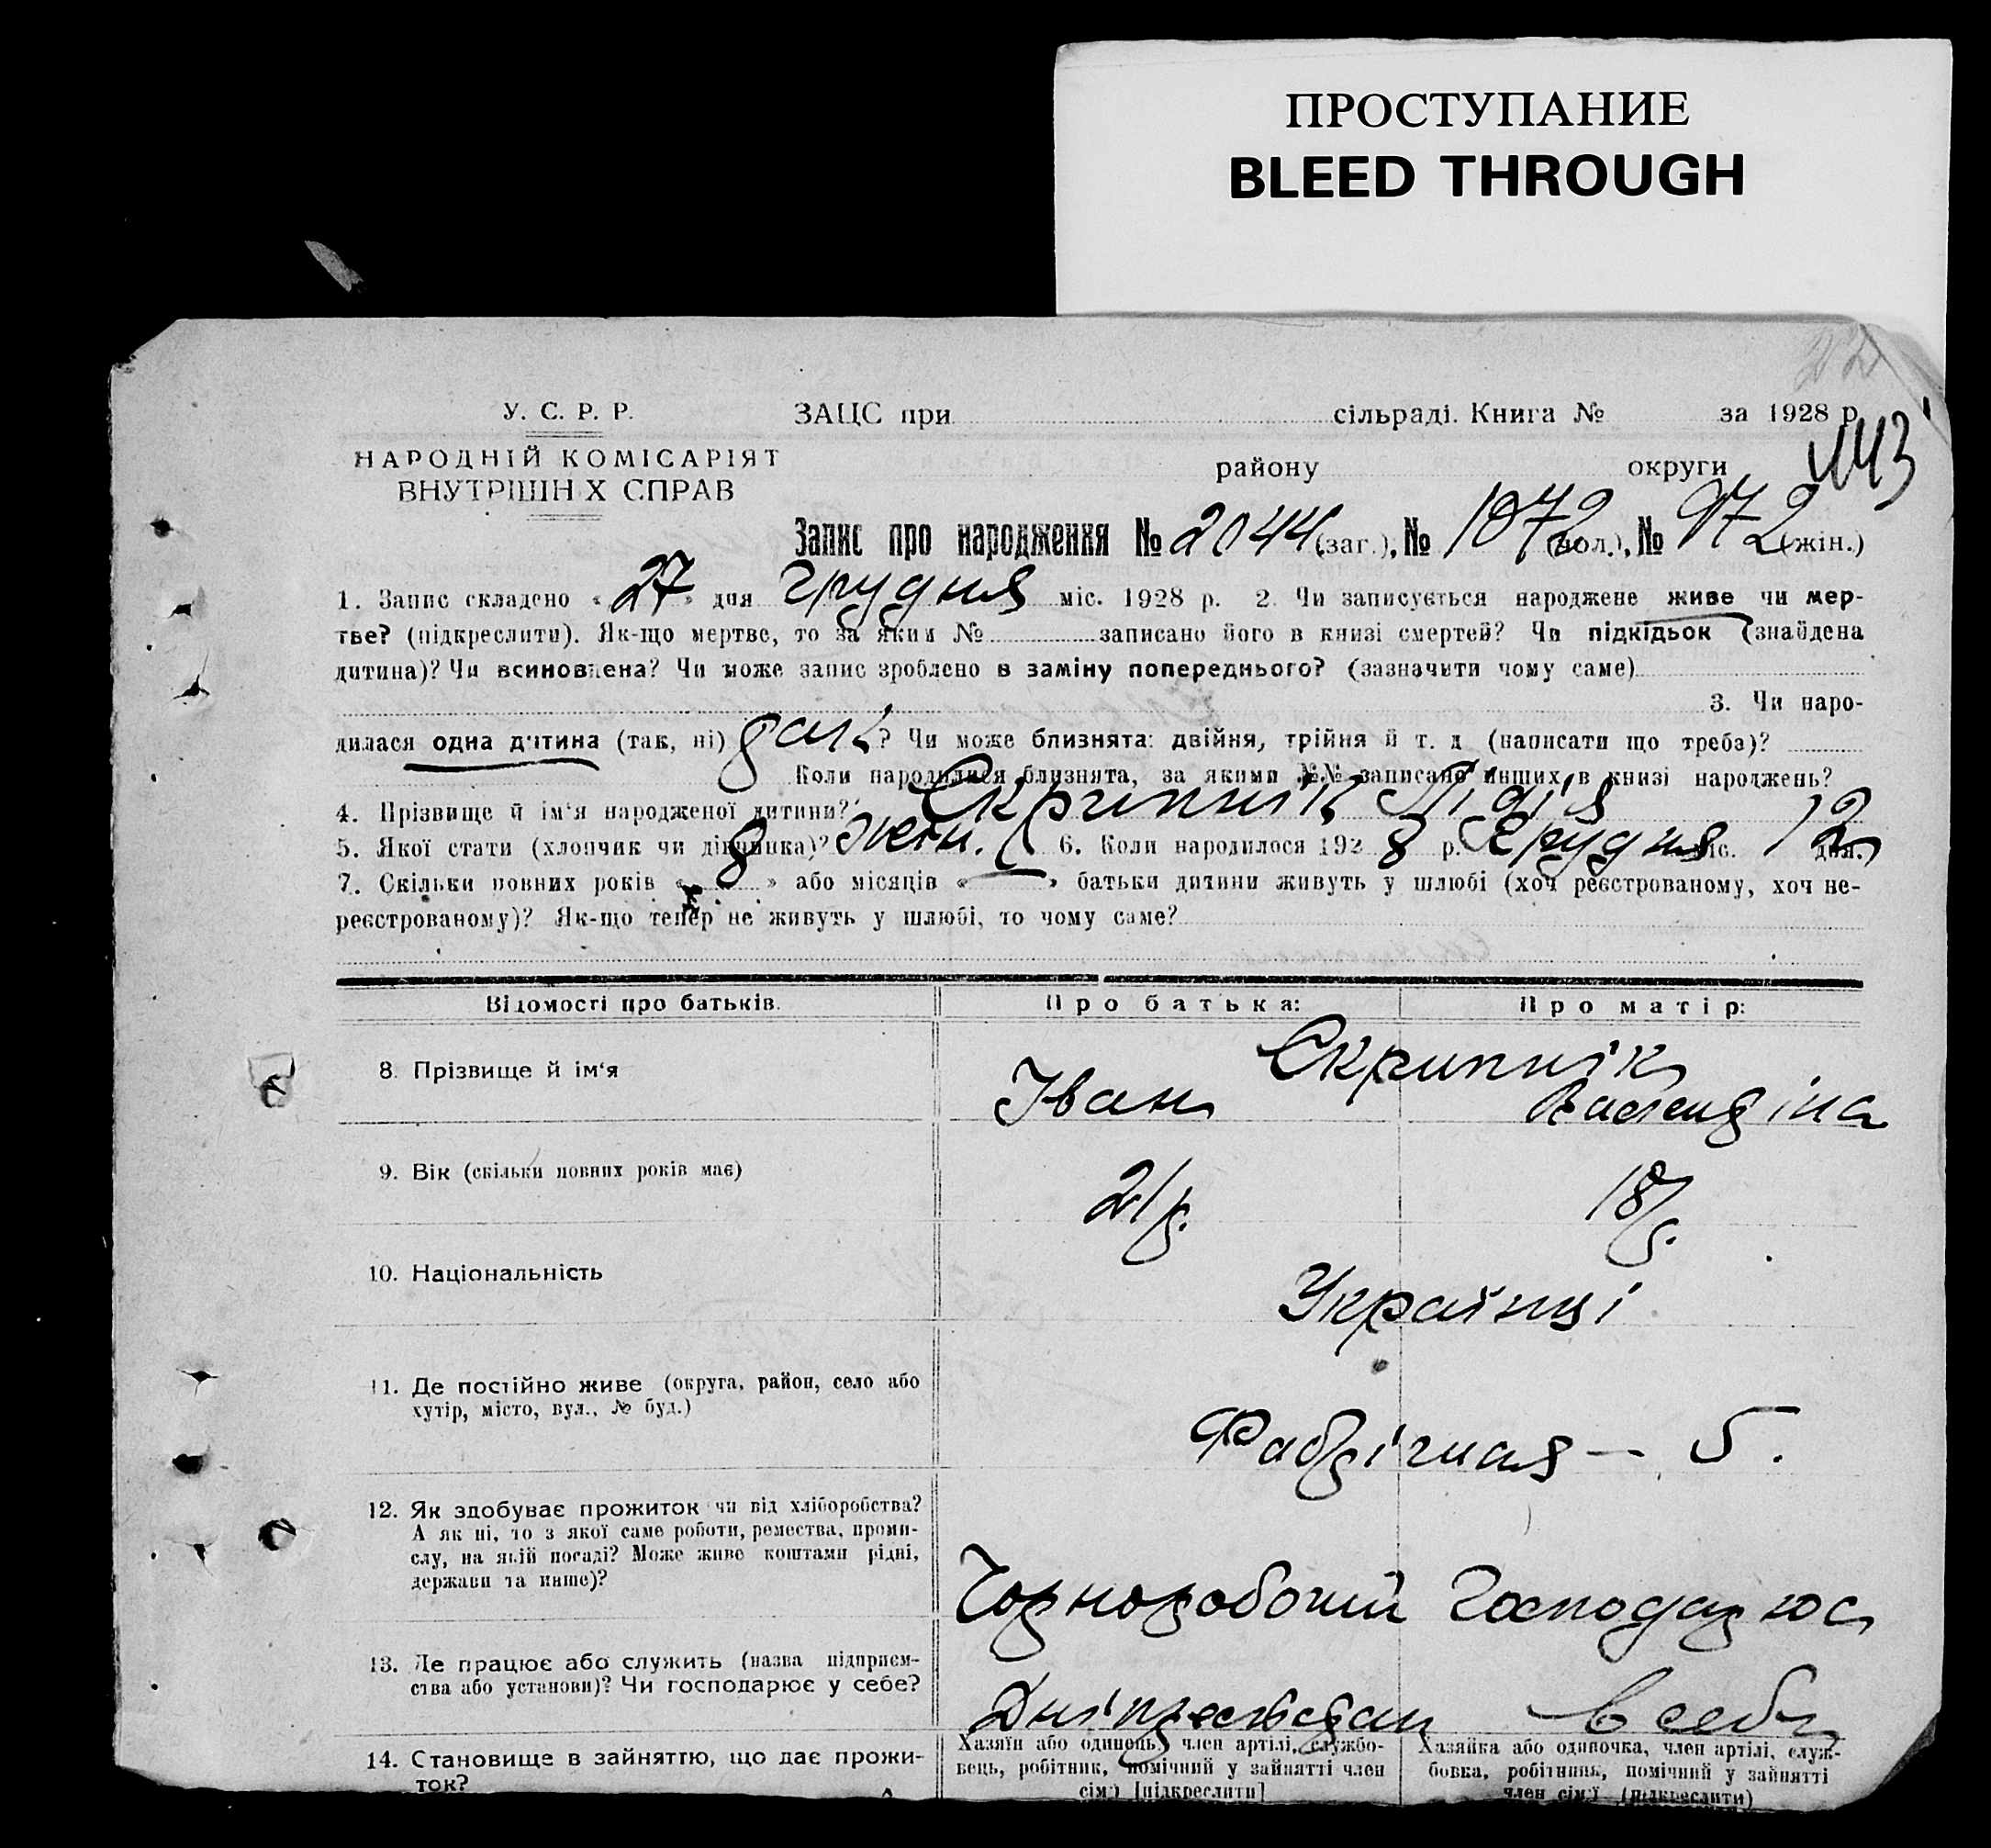 ПРОСТУПАНИЕ
BLEED THROUGH
У. С. Р. Р.
ЗАЦС при сільраді. Книга № за 1928 р.
НАРОДНІЙ КОМІСАРІЯТ
ВНУТРІШН Х СПРАВ
району округи
443
Запис про народження № 2044 (заг.), № 1072 (чол.), № 972 (жін.)
1. Запис складено « 27 » дня грудня міс. 1928 р. 2. Чи записується народжене живе чи мер-
тве? (підкреслити). Як-що мертве, то за яким № записано його в книзі смертей? Чи підкідьок (знайдена
дитина)? Чи всиновлена? Чи може запис зроблено в заміну попереднього? (зазначити чому саме)
3. Чи наро-
дилася одна дитина (так, ні) ? Чи може близнята: двійня, трійня й т. д (написати що треба)?
Коли народилися близнята, за якими №№ записано инших в книзі народжень?
4. Прізвище й ім'я народженої дитини? Скрипник Лідія
5. Якої стати (хлопчик чи дівчинка)? жен. 6. Коли народилося 192 8 р. Грудня міс. 12 дня.
7. Скільки повних років « 8 » або місяців « — » батьки дитини живуть у шлюбі (хоч реєстрованому, хоч не-
реєстрованому)? Як-що тепер не живуть у шлюбі, то чому саме?
Відомості про батьків. Про батька: Про матір:
Скрипнік
8. Прізвище й ім'я Іван Валендіна
9. Вік (скільки повних років має) 21/р. 18/р.
10. Національність Українці
11. Де постійно живе (округа, район, село або
хутір, місто, вул., № буд.)
Фабрічная — 5.
12. Як здобуває прожиток чи від хліборобства?
А як ні, то з якої саме роботи, ремества, проми-
слу, на якій посаді? Може живе коштами рідні,
держави та инше)?
Чорноробочий Господарює
13. Де працює або служить (назва підприєм-
ства або установи)? Чи господарює у себе?
в себе
14. Становище в зайняттю, що дає прожи-
ток?
Хазяїн або одинець, член артілі, службо-
вець, робітник, помічний у зайнятті член
сім'ї [підкреслити]
Хазяйка або одиночка, член артілі, служ-
бовка, робітниця, помічний у зайнятті
член сім'ї (підкреслити)